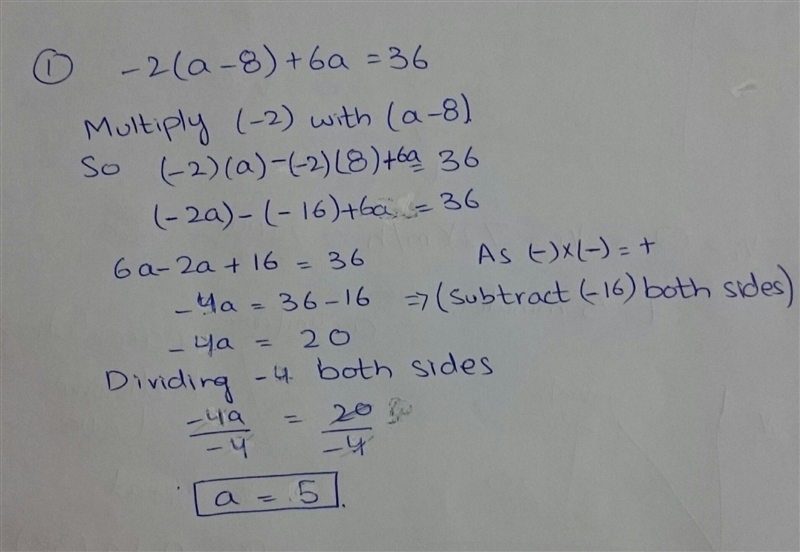 ① -2(a-8)+6a = 36
Multiply (-2) with (a-8)
So (-2)(a)-(-2)(8)+6a = 36
(-2a)-(-16)+6a = 36
6a-2a+16 = 36 As (-)x(-) = +
-4a = 36-16 => (Subtract (-16) both sides)
-4a = 20
Dividing -4 both sides
-4a/-4 = 20/-4
a = 5.